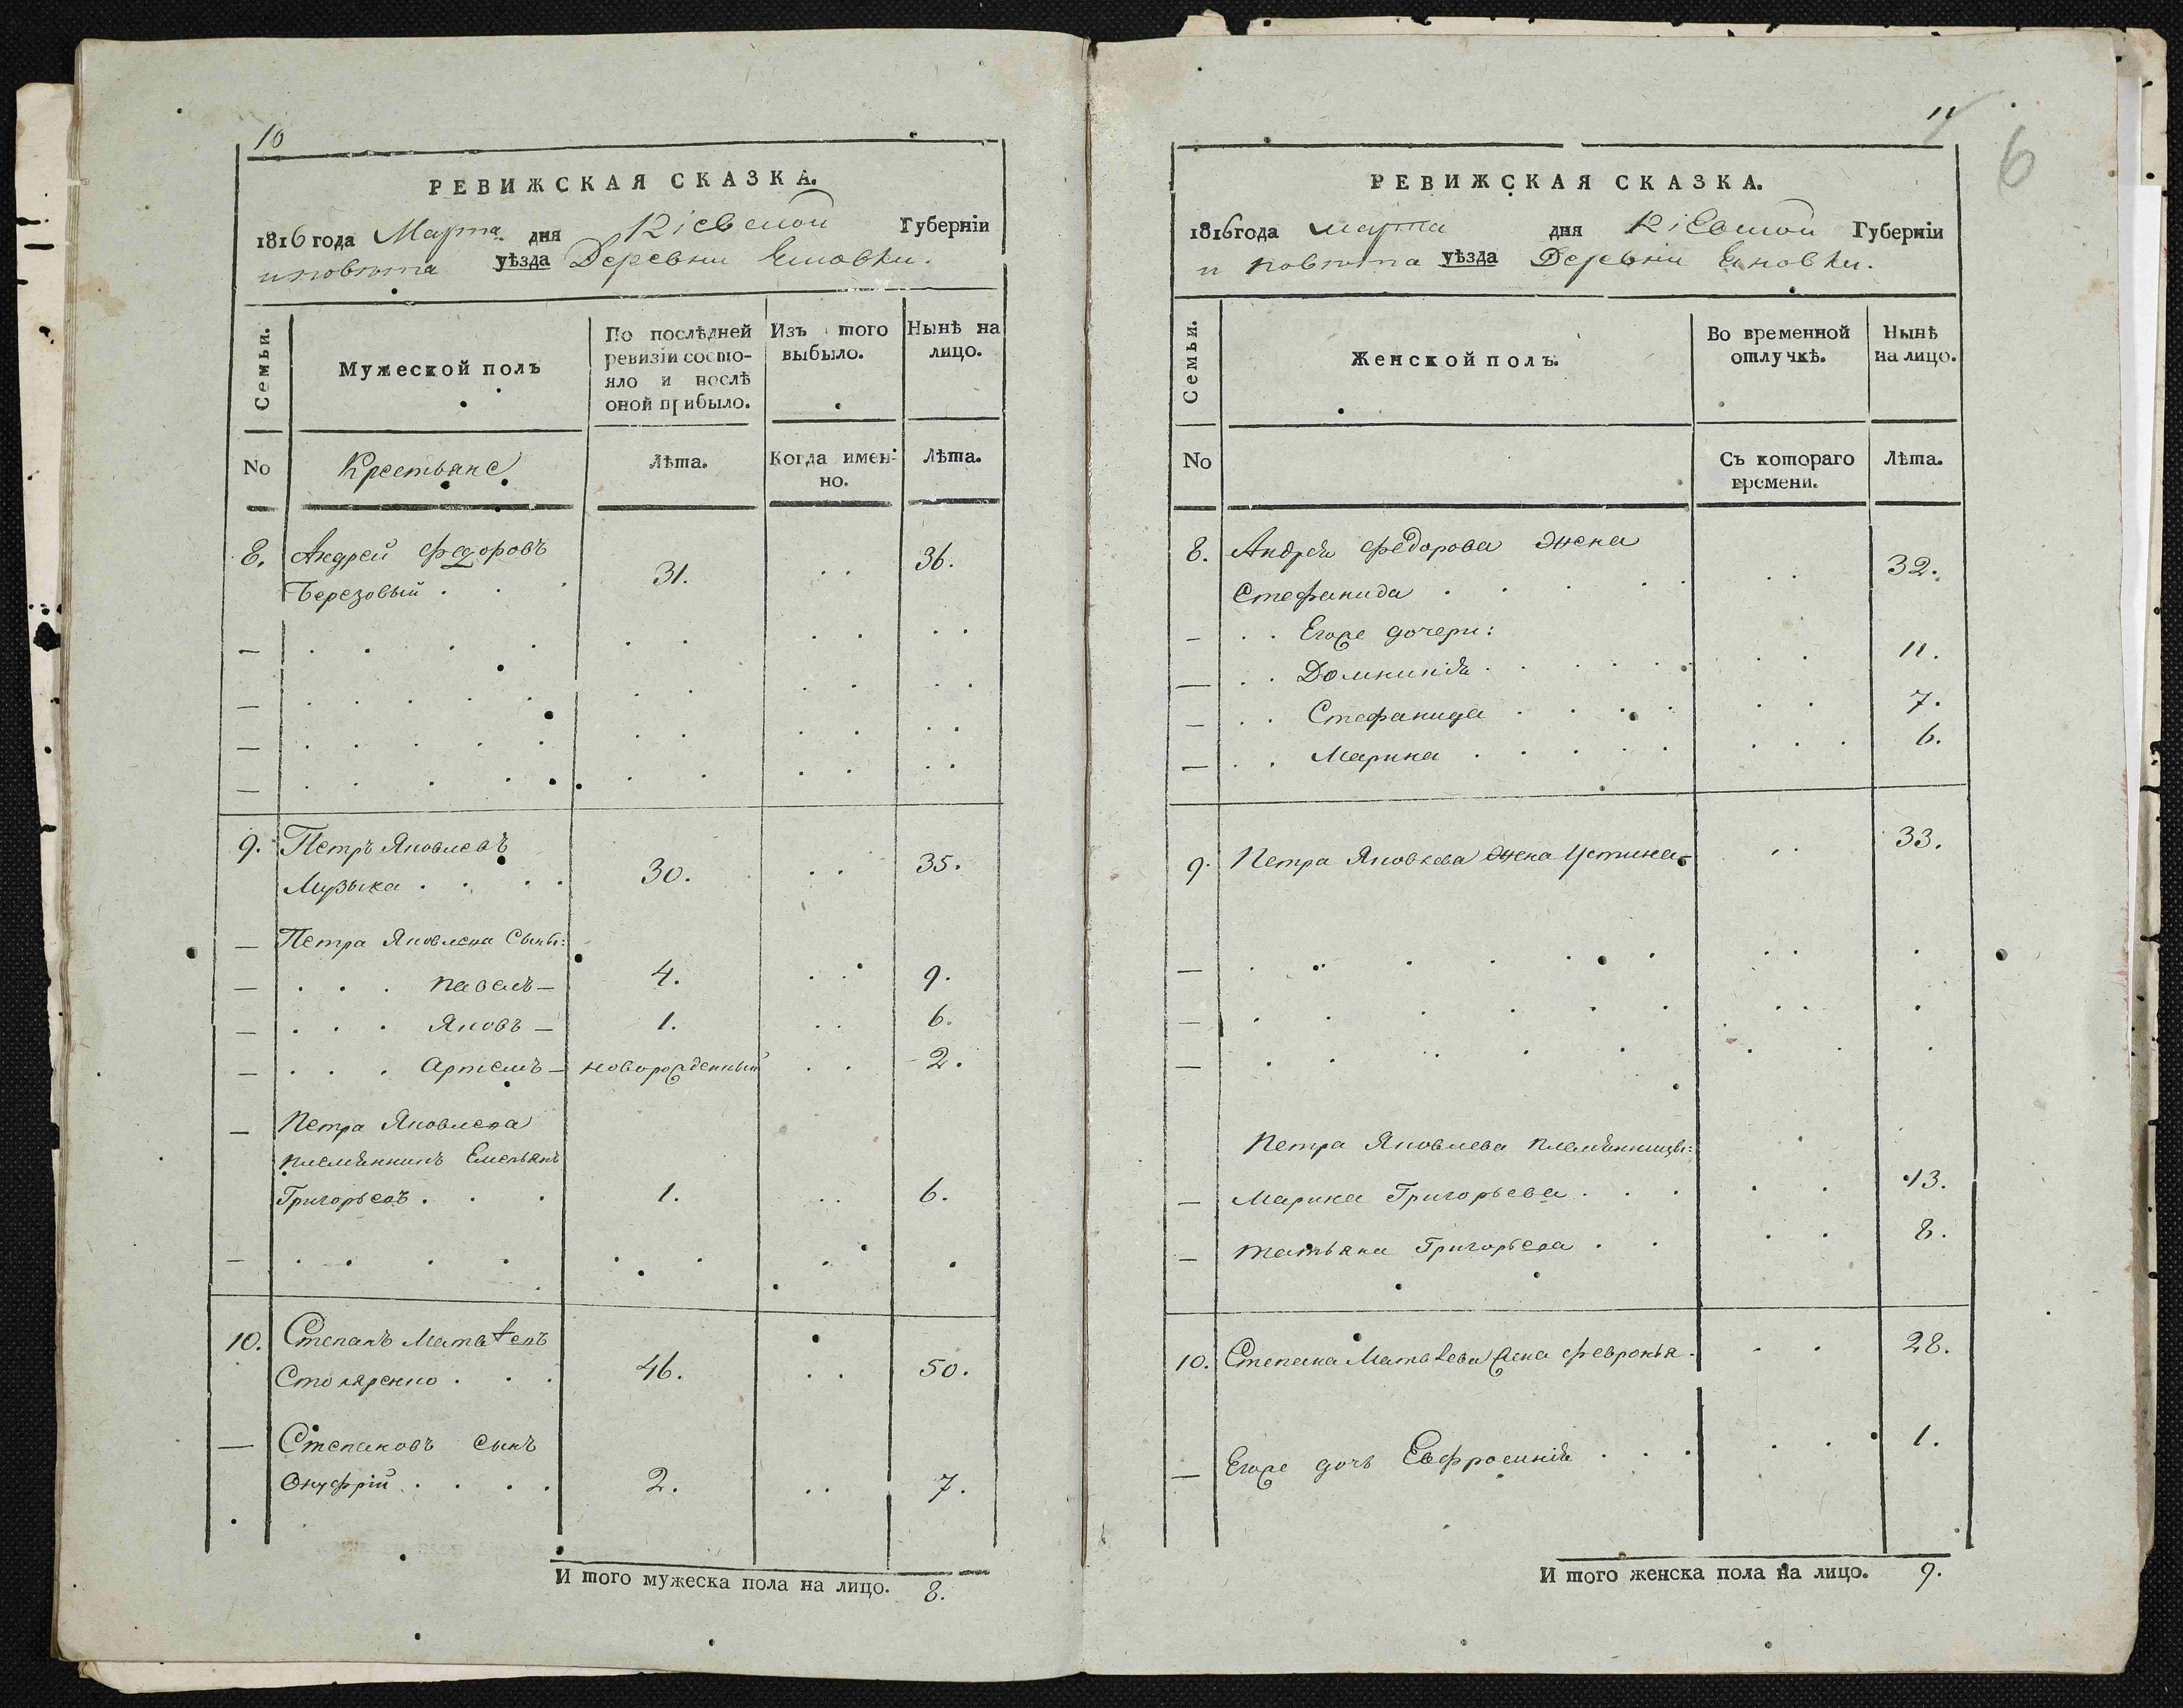 10
РЕВИЖСКАЯ СКАЗКА.
1816 года Марта дня Кіевской Губерніи
и повѣта уѣзда Деревни
Семьи.
Мужеской полъ
По послѣдней ревизіи состо-
яло и послѣ
оной прибыло.
Изъ того
выбыло.
Нынѣ на
лицо.
No
Крестьяне
Лѣта.
Когда имен-
но.
Лѣта.
8. Андрей Федоровъ
Березовый . . . 31. . . 36.
9. Петръ Яковлевъ
Музыка . . . . 30. . . 35.
— Петра Яковлева Сыны:
— . . . Павелъ — 4. . . 9.
— . . . Яковъ — 1. . . 6.
— . . . Артемъ — новорожденный . . 2.
— Петра Яковлева
племянникъ Емельянъ
Григорьевъ . . . 1. . . 6.
10. Степанъ Матвѣевъ
Столяренко . . . 46. . . 50.
— Степановъ сынъ
Онуфрій . . . . 2. . . 7.
И того мужеска пола на лицо. 8.
11
6
РЕВИЖСКАЯ СКАЗКА.
1816 года марта дня Кіевской Губерніи
и повѣта уѣзда Деревни
Семьи.
Женской полъ.
Во временной
отлучкѣ.
Нынѣ
на лицо.
No
Съ котораго
времени.
Лѣта.
8. Андрея Федорова жена
Стефанида . . . . . . 32.
— . . Егоже дочери:
— . . Домникія . . . . . . . 11.
— . . Стефанида . . . . . . 7.
— . . Марина . . . . . . . . 6.
9. Петра Яковлева жена Устина . . 33.
Петра Яковлева племянницы:
— Марина Григорьева . . . . . 13.
— Татьяна Григорьева . . . . 8.
10. Степана Матвѣева жена Февронья . . . 28.
— Егоже дочь Евфросинія . . . . . 1.
И того женска пола на лицо. 9.